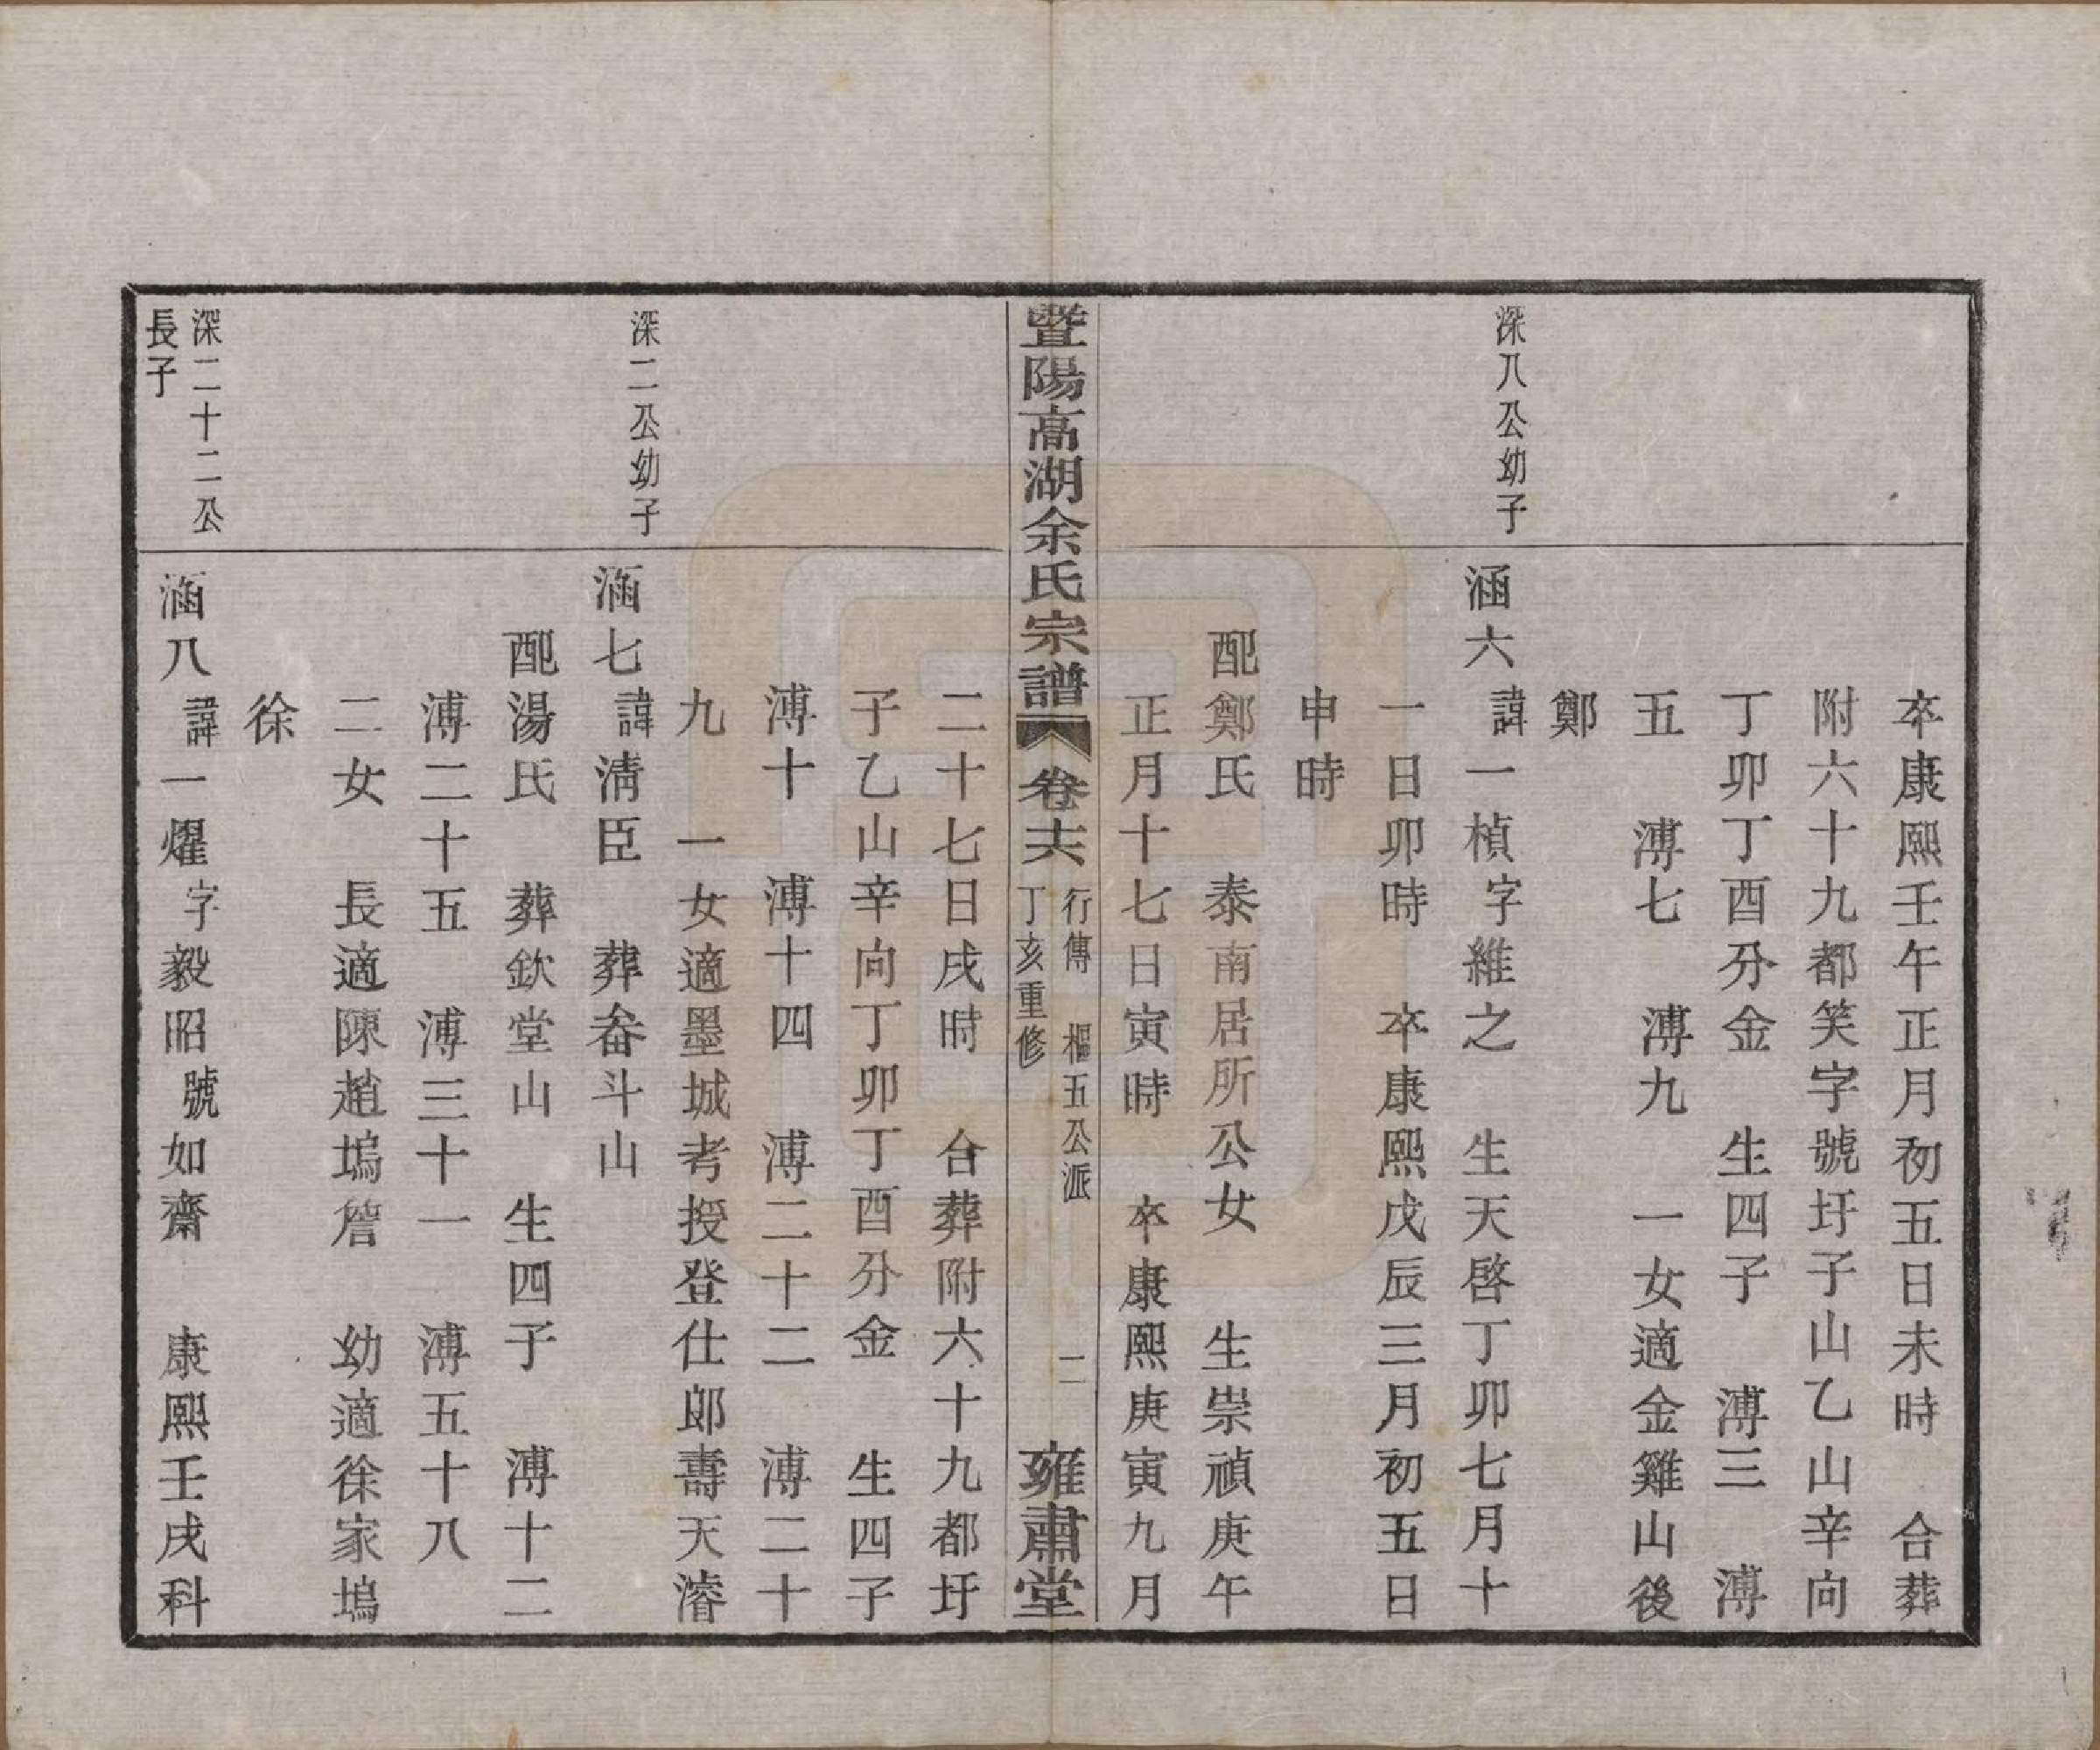 卒康熙壬午正月初五日未時　合葬
附六十九都笑字號圩子山乙山辛向
丁卯丁酉分金　生四子　溥三　溥
五　溥七　溥九　一女適金雞山後
鄭
深八公幼子
涵六諱一楨字維之　生天啓丁卯七月十
一日卯時　卒康熙戊辰三月初五日
申時
配鄭氏　泰南居所公女　生崇禎庚午
正月十七日寅時　卒康熙庚寅九月
暨陽高湖余氏宗譜　卷十六　行傳　樞五公派　丁亥重修　二　雍肅堂
二十七日戌時　合葬附六十九都圩
子乙山辛向丁卯丁酉分金　生四子
溥十　溥十四　溥二十二　溥二十
九　一女適墨城考授登仕郎壽天濬
深二公幼子
涵七諱淸臣　葬畚斗山
配湯氏　葬欽堂山　生四子　溥十二
溥二十五　溥三十一　溥五十八
二女　長適陳趙塢詹　幼適徐家塢
徐
深二十二公
長子
涵八諱一燿字毅昭號如齋　康熙壬戌科